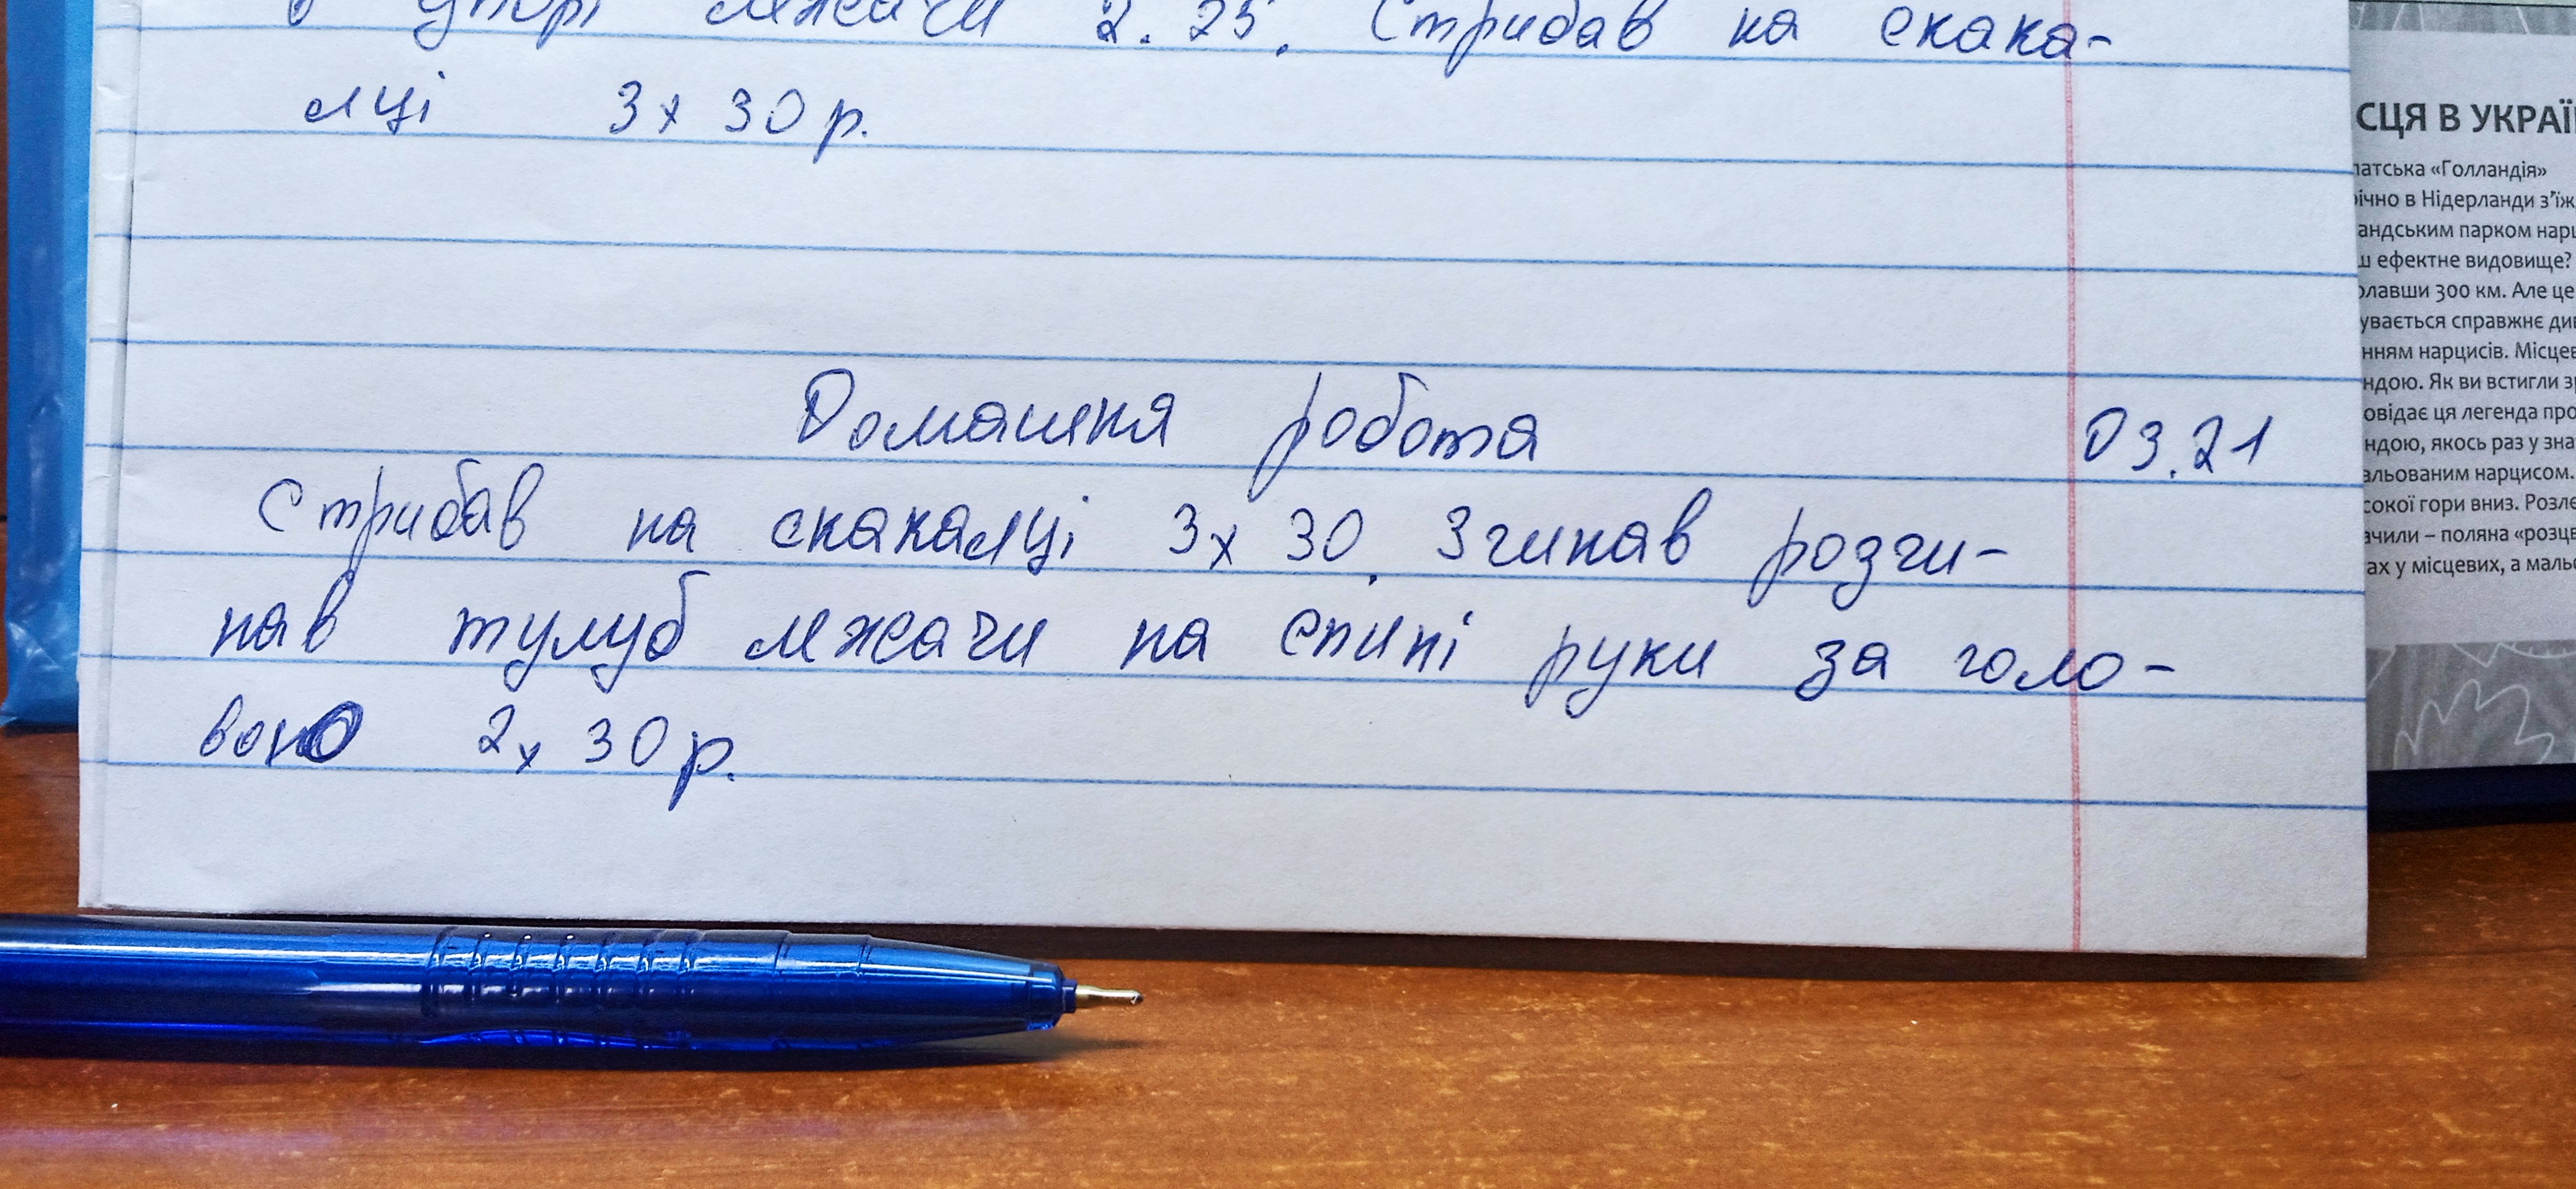 в упорі лжачи 2. 25. Стрибав на скака-
лці 3х 30 р.
Домашня робота 03.21
Стрибав на скакалці 3х 30. Згинав розги-
нав тулуб лжачи на спині руки за голо-
вою 2х 30 р.
СЦЯ В УКРАЇ
патська «Голландія»
річно в Нідерланди з'їж
андським парком нарц
ш ефектне видовище?
олавши 300 км. Але це
увається справжнє див
нням нарцисів. Місцев
ндою. Як ви встигли зр
овідає ця легенда про
ндою, якось раз у зна
альованим нарцисом.
сокої гори вниз. Розле
ачили – поляна «розцв
ах у місцевих, а мальо